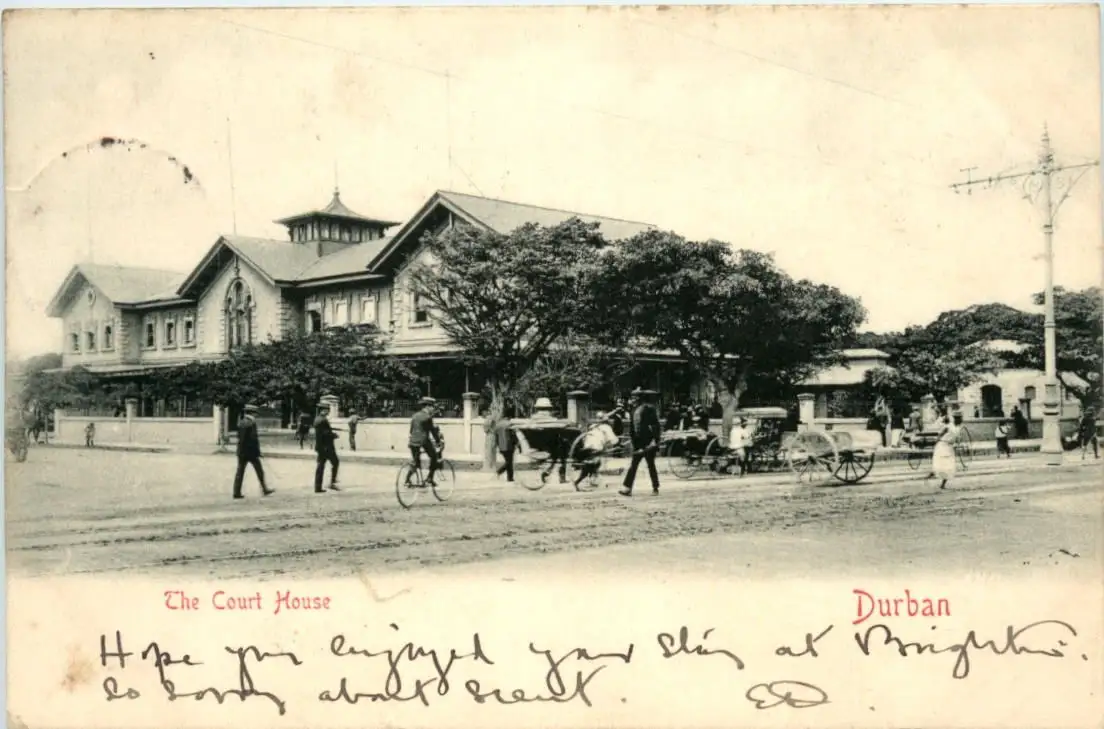 The Court House
Durban
Hope you enjoyed your stay at Brighton.
so sorry about scent.
ED